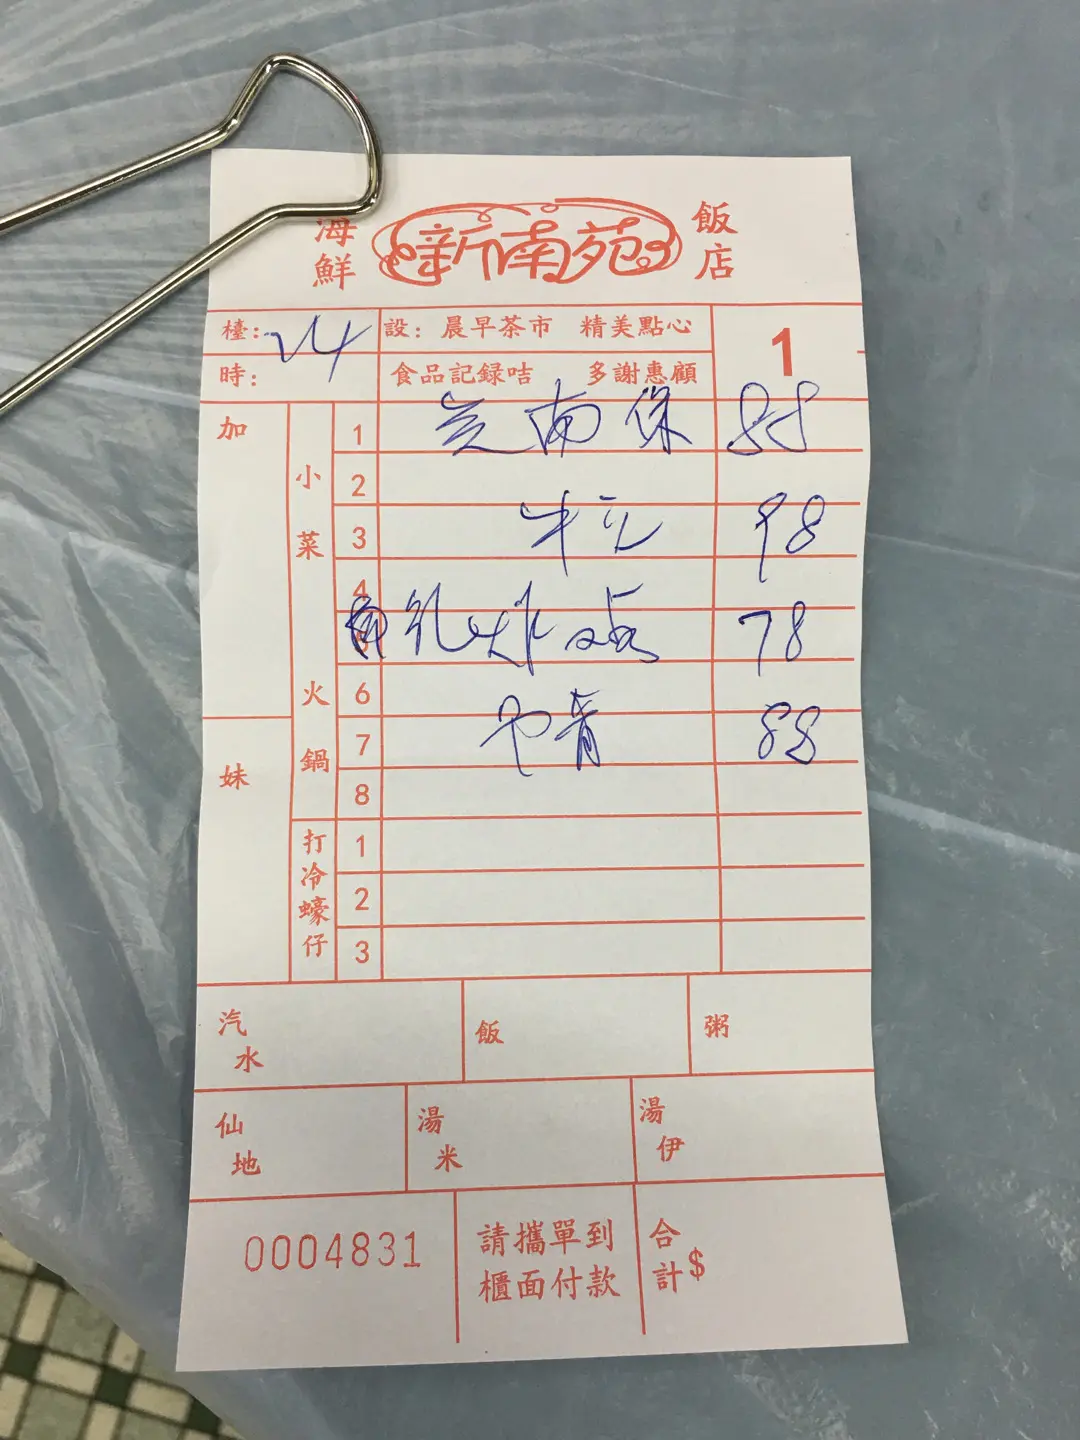 海鮮 新南苑 飯店
檯: 24
設: 晨早茶市 精美點心
1
時:
食品記録咭 多謝惠顧
加
妹
小菜火鍋
1 88
2
3 牛 98
4
78
6
7 88
8
打冷蠔仔
1
2
3
汽水 飯 粥
仙地 湯米 湯伊
0004831 請攜單到櫃面付款 合計$